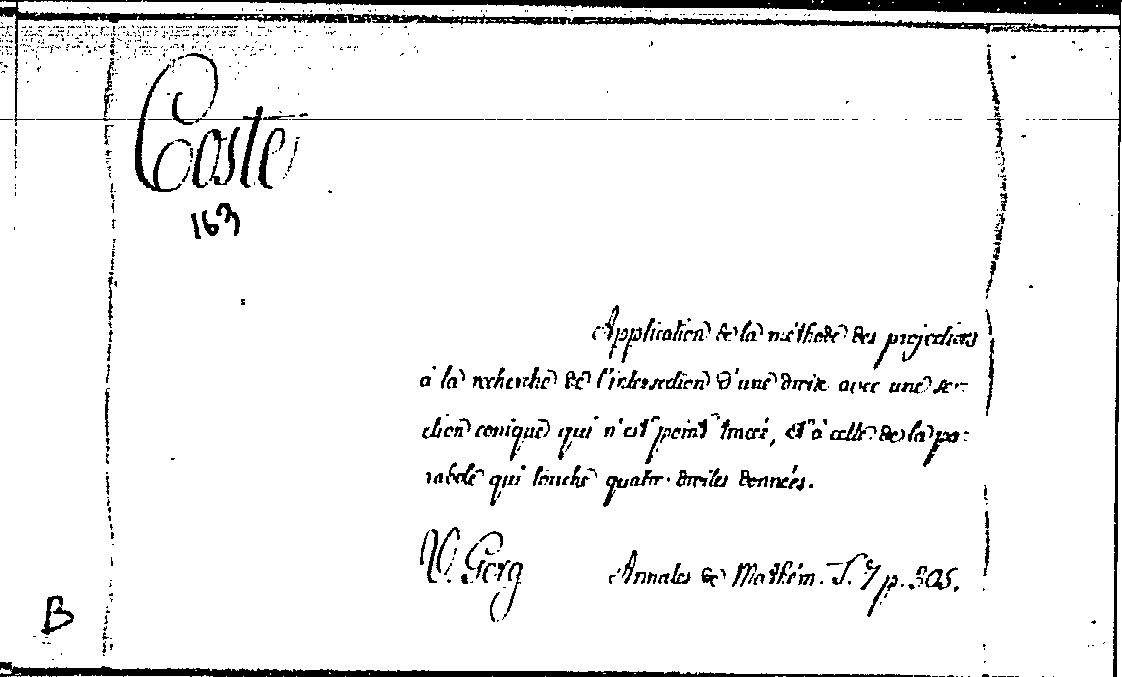 Coste
163
Application de la méthode des projections
à la recherche de l'intersection d'une droite avec une sec-
tion conique qui n'est point tracé, et à celle de la pa-
rabole qui touche quatre droites données.
V. Gerg Annales de Mathém. T. 7 p. 305.
B